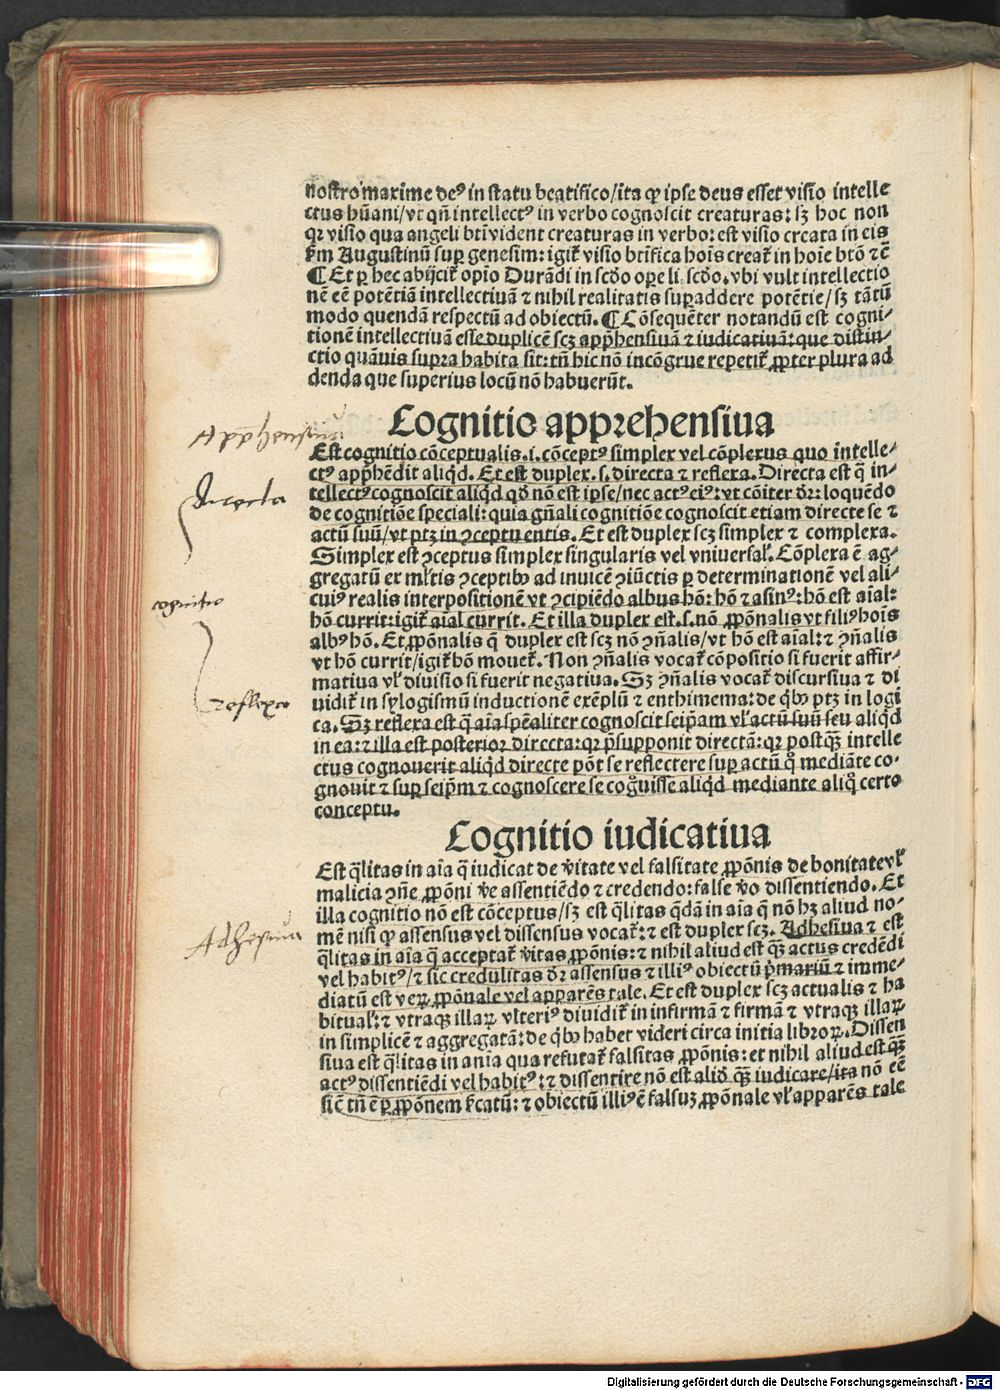 nostro maxime deꝰ in statu beatifico/ita ꝙ ipse deus esset visio intelle
ctus hũani/vt qñ intellectꝰ in verbo cognoscit creaturas: sꝫ hoc non
qꝛ visio qua angeli btĩ vident creaturas in verbo: est visio creata in eis
ẜm Augustinũ suꝑ genesim: igit̃ visio btĩfica hoĩs creat̃ in hoĩe btõ ⁊c̃
¶ Et ꝑ hec abijcit̃ opĩo Durãdi in scðo oꝑe li. scðo. vbi vult intellectio
nẽ eẽ potẽtiã intellectiuã ⁊ nihil realitatis suꝑaddere potẽtie/sꝫ tãtũ
modo quendã respectũ ad obiectũ. ¶ Cõsequẽter notandũ est cogni⸗
tionẽ intellectiuã esse duplicẽ scꝫ app̃hensiuã ⁊ iudicatiuã: que distin⸗
ctio quãuis supra habita sit: tñ hic nõ incõgrue repetit̃ ꝓpter plura ad
denda que superius locũ nõ habuerũt.
Cognitio apprehensiua
Apprehensiua
Est cognitio cõceptualis .i. cõceptꝰ simplex vel cõplexus quo intelle⸗
ctꝰ app̃hẽdit aliqd. Et est duplex .s. directa ⁊ reflexa. Directa est q̃ in⸗
Directa
tellectꝰ cognoscit aliqd qð nõ est ipse/nec actꝰ eiꝰ: vt cõiter dr̃: loquẽdo
de cognitiõe speciali: quia gñali cognitiõe cognoscit etiam directe se ⁊
actũ suũ/vt ptꝫ in ꝯceptu entis. Et est duplex scꝫ simplex ⁊ complexa.
Simplex est ꝯceptus simplex singularis vel vniuersal̃. Cõplexa ẽ ag⸗
gregatũ ex ml̃tis ꝯceptibꝰ ad inuicẽ ꝯiũctis ꝑ determinationẽ vel ali⸗
cognitio
cuiꝰ realis interpositionẽ vt ꝯcipiẽdo albus hõ: hõ ⁊ asinꝰ: hõ est aĩal:
hõ currit: igit̃ aĩal currit. Et illa duplex est .s. nõ ꝓpõnalis vt filiꝰ hoĩs
albꝰ hõ. Et ꝓpõnalis q̃ duplex est scꝫ nõ ꝯñalis/vt hõ est aĩal: ⁊ ꝯñalis
vt hõ currit/igit̃ hõ mouet̃. Non ꝯñalis vocat̃ cõpositio si fuerit affir⸗
matiua vl̃ diuisio si fuerit negatiua. Sꝫ ꝯñalis vocat̃ discursiua ⁊ di
uidit̃ in sylogismũ inductionẽ exẽplũ ⁊ enthimema: de qbꝰ ptꝫ in logi
reflexa
ca. Sꝫ reflexa est q̃ aĩa spẽaliter cognoscit seip̃am vl̃ actũ suũ seu aliqd
in ea: ⁊ illa est posterior directa: qꝛ p̃supponit directã: qꝛ postꝙ̃ intelle
ctus cognouerit aliqd directe põt se reflectere suꝑ actũ quo mediãte co⸗
gnouit ⁊ suꝑ seip̃m ⁊ cognoscere se cognouisse aliqd mediante aliquo certo
conceptu.
Cognitio iudicatiua
Est q̃litas in aĩa q̃ iudicat de ṽitate vel falsitate ꝓpõnis de bonitate vl̃
malicia ꝯñe ꝓpõni ṽe assentiẽdo ⁊ credendo: false ṽo dissentiendo. Et
illa cognitio nõ est cõceptus/sꝫ est q̃litas q̃dã in aĩa q̃ nõ hꝫ aliud no⸗
Adhesiua
mẽ nisi ꝙ assensus vel dissensus vocat̃: ⁊ est duplex scꝫ. Adhesiua ⁊ est
q̃litas in aĩa q̃ acceptat̃ ṽitas ꝓpõnis: ⁊ nihil aliud est ꝙ̃ actus credẽdi
vel habitꝰ/⁊ sic credulitas dr̃ assensus ⁊ illiꝰ obiectũ p̃mariũ ⁊ imme⸗
diatũ est veꝝ ꝓpõnale vel apparẽs tale. Et est duplex scꝫ actualis ⁊ ha
bitual̃: ⁊ vtraqꝫ illaꝝ vlteriꝰ diuidit̃ in infirmã ⁊ firmã ⁊ vtraqꝫ illaꝝ
in simplicẽ ⁊ aggregatã: de qbꝰ habet videri circa initia libroꝝ. Dissen
siua est q̃litas in anĩa qua refutat̃ falsitas ꝓpõnis: et nihil aliud est ꝙ̃
actꝰ dissentiẽdi vel habitꝰ: ⁊ dissentire nõ est aliud ꝙ̃ iudicare/ita nõ eẽ
sic̃ tñ ẽ ꝑ ꝓpõnem ẜcatũ: ⁊ obiectũ illiꝰ ẽ falsuꝫ ꝓpõnale vl̃ apparẽs tale
Digitalisierung gefördert durch die Deutsche Forschungsgemeinschaft - DFG